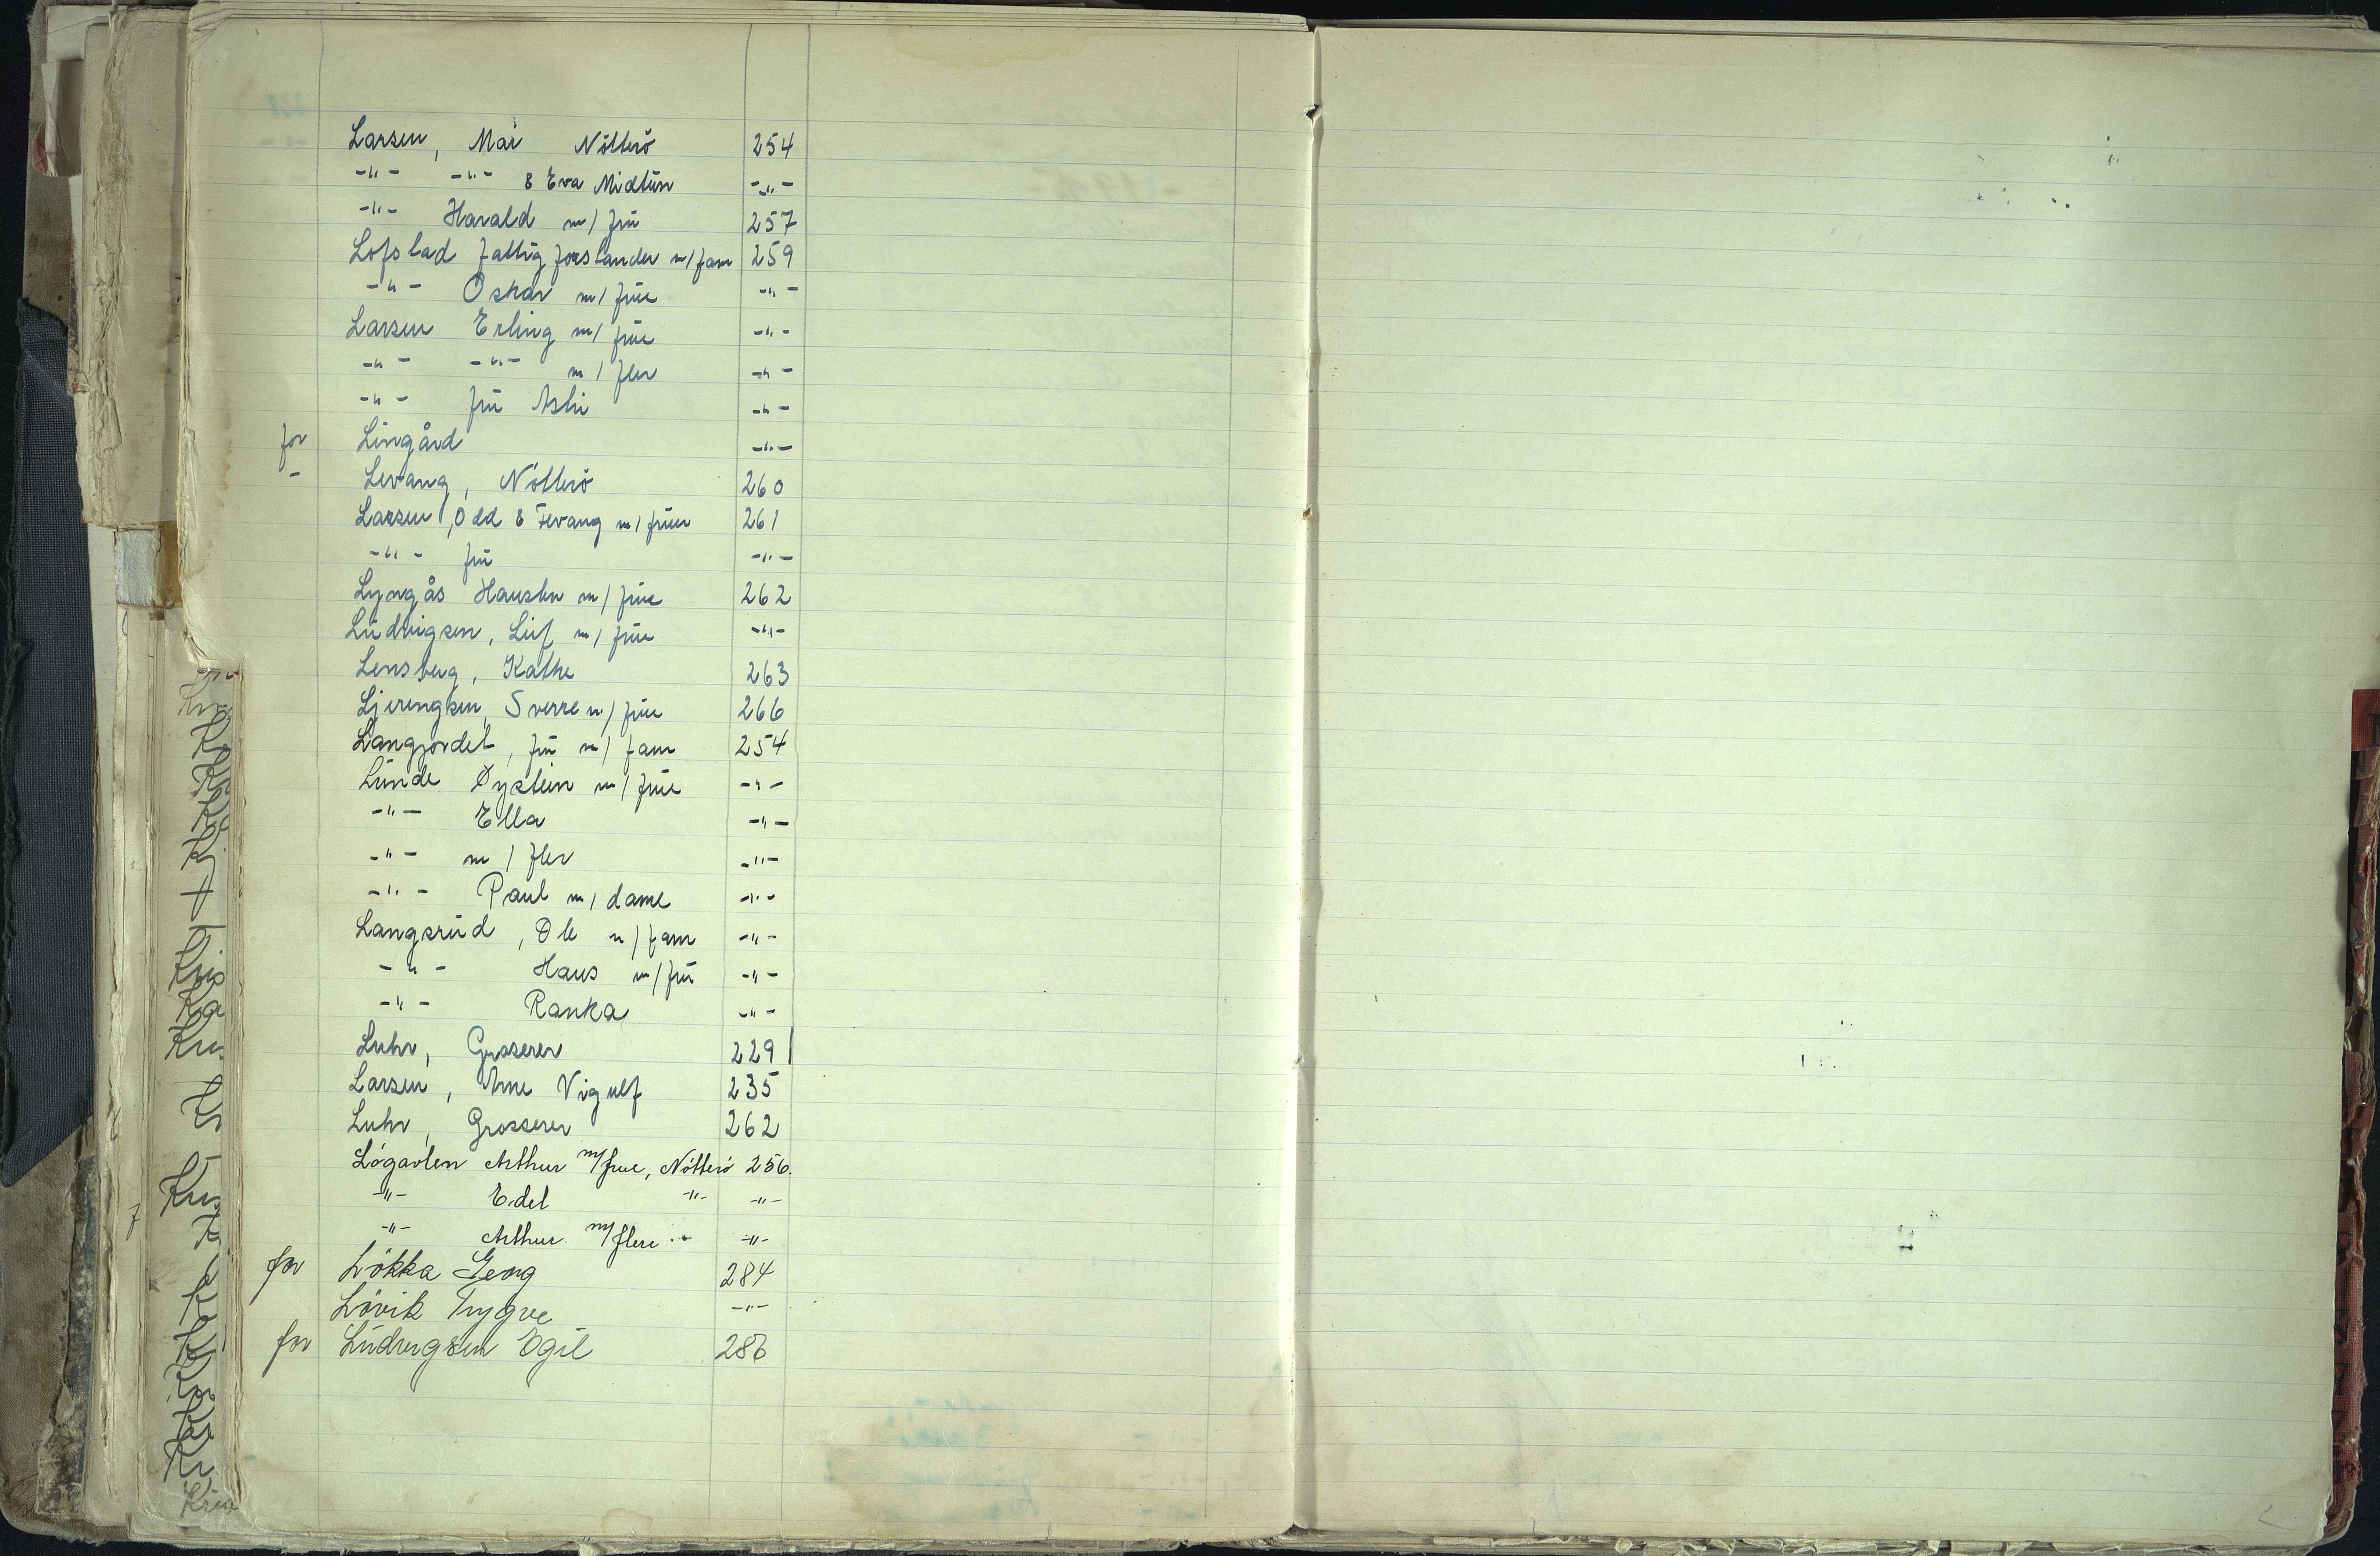 Larsen, Mai Nötterö 254
-"- -"- & Eva Midtun -"-
-"- Harald m/ fru 257
Lofstad fattigforstander m/ fam 259
-"- Oskar m/ frue -"-
Larsen Erling m/ frue -"-
-"- -"- m/ fler -"-
-"- fru Aslu -"-
for Lingård -"-
- Levang, Nötterö 260
Larsen, Odd & Tevang m/ fruer 261
-"- fru -"-
Lyngås Hansten m/ frue 262
Ludvigsen, Leif m/ frue -"-
Lensberg, Kathe 263
Ljerengken, Sverre m/ frue 266
Langjordet, fru m/ fam 254
Lunde Øystein m/ frue -"-
-"- Ella -"-
-"- m/ fler -"-
-"- Paul m/ dame -"-
Langsrud, Ole m/ fam -"-
-"- Hans m/ fru -"-
-"- Ranka -"-
Luhr, Grosserer 229
Larsen, Arne Vigulf 235
Luhr, Grosserer 262
Lögavlen Arthur m/ frue, Nötterö 256.
-"- Edel -"- -"-
-"- Arthur m/ flere -"- -"-
for Lökka Georg 284
Lövik Trygve -"-
for Ludvigsen Egil 286